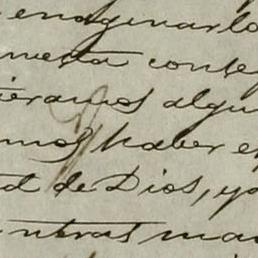 enaginarlo
nuesta conse
ieramos algu
mos haber e
d de Dios, yo
ntras ma